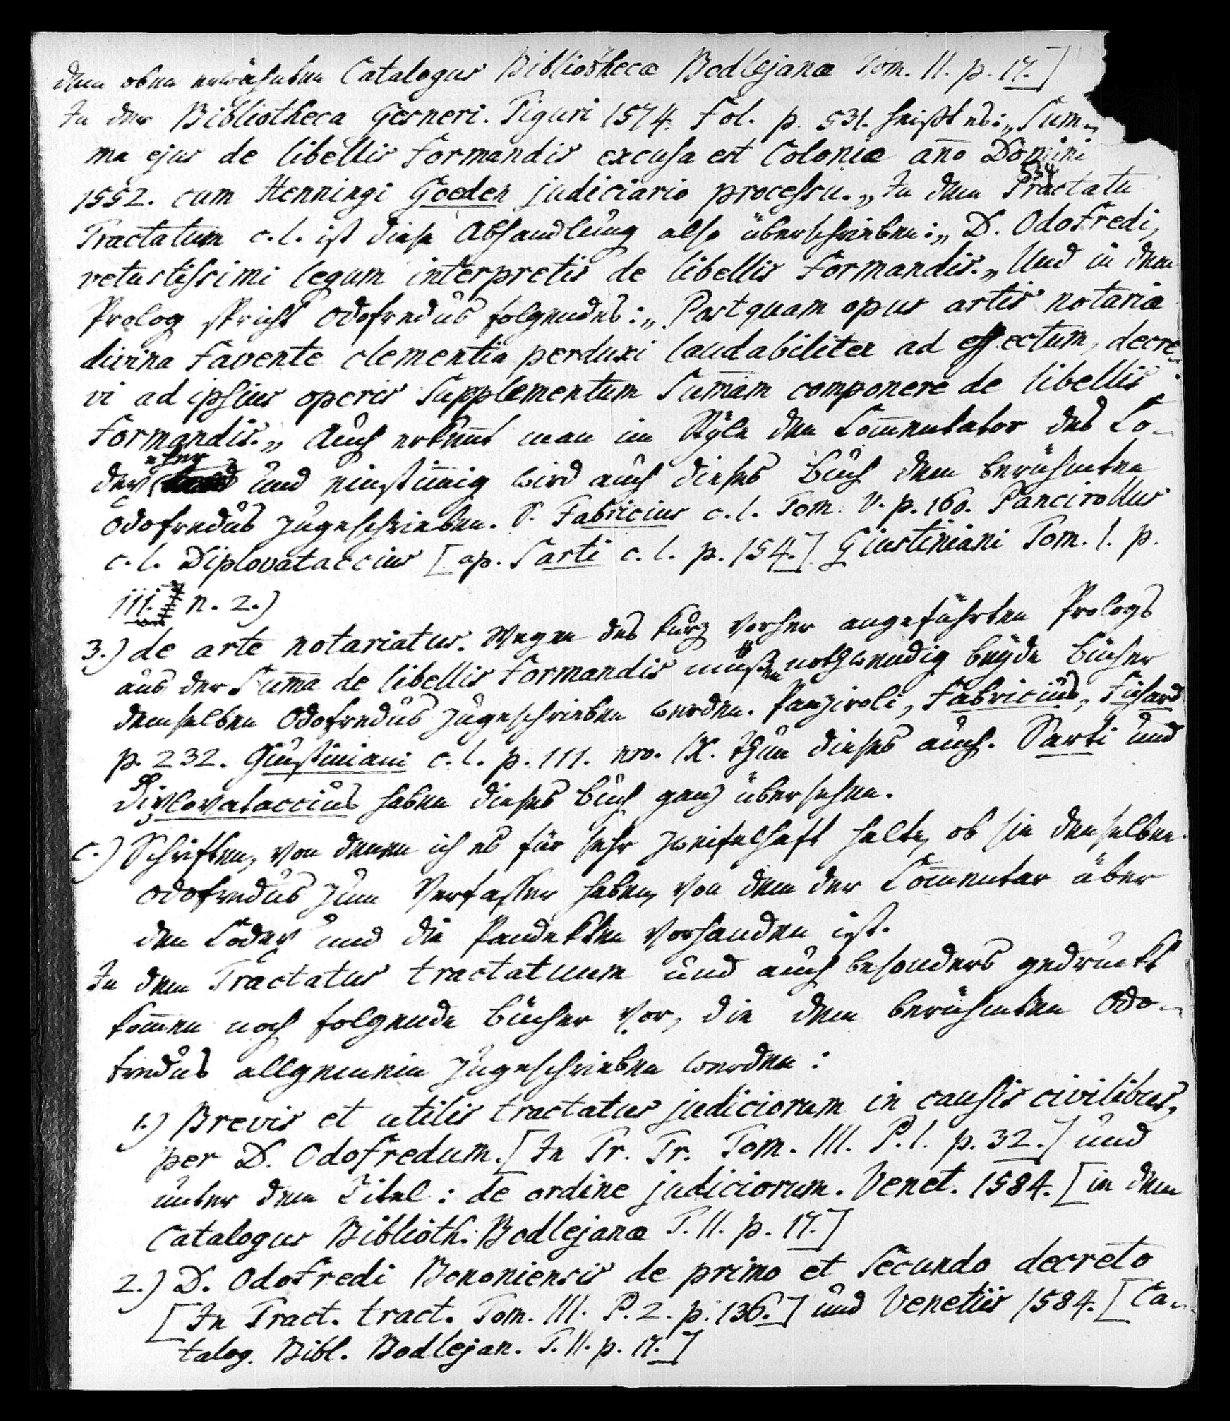 dem oben erwähnten Catalogus Bibliothecæ Bodlejanæ Tom. II. p. 17.]
In der Bibliotheca Gesneri. Tiguri 1574. Fol. p. 531. heißt es: „Sum-
ma ejus de libellis formandis excusa est Coloniæ año Domini
1552. cum Henningi Goeden judiciario processu.„ In dem Tractatu
Tractatum c. l. ist diese Abhandlung also überschrieben: „D. Odofredi,
vetustissimi legum interpretis de libellis formandis.„ Und in dem
Prolog spricht Odofredus folgendes: „Postquam opus artis notariæ
divina favente clementia perduxi laudabiliter ad effectum, decre-
vi ad ipsius operis Supplementum Sum̄am componere de libellis
formandis.„ Auch erkeñt man im Style den Com̄entator des Co-
dex und einstim̄ig wird auch dieses Buch dem berühmten
Odofredus zugeschrieben. S. Fabricius c. l. Tom. V. p. 160. Pancirollus
c. l. Diplovataccius [ap. Sarti c. l. p. 154.] Giustiniani Tom. I. p.
111. n. 2.)
3.) de arte notariatus. Wegen des kurz vorher angeführten Prologs
aus der Sum̄a de libellis formandis müßen nothwendig beyde Bücher
demselben Odofredus zugeschrieben werden. Panziroli, Fabricius, Fichard
p. 232. Giustiniani c. l. p. 111. nro. IX. thun dieses auch. Sarti und
Diplovataccius haben dieses Buch ganz übersehen.
C.) Schriften, von denen ich es für sehr zweifelhaft halte, ob sie denselben
Odofredus zum Verfasser haben, von dem der Com̄entar über
den Codex und die Pandekten vorhanden ist.
In dem Tractatus tractatuum und auch besonders gedruckt
kom̄en noch folgende Bücher vor, die dem berühmten Odo-
fredus allgemein zugeschrieben werden:
1.) Brevis et utilis tractatus judiciorum in causis civilibus,
per D. Odofredum. [In Tr. Tr. Tom. III. P. I. p. 32.] und
unter dem Titel: de ordine judiciorum. Venet. 1584. [in dem
Catalogus Biblioth. Bodlejanæ T. II. p. 17.]
2.) D. Odofredi Bononiensis de primo et secundo decreto
[In Tract. tract. Tom. III. P. 2. p. 136.] und Venetiis 1584. [Ca-
talog. Bibl. Bodlejan. T. II. p. 17.]